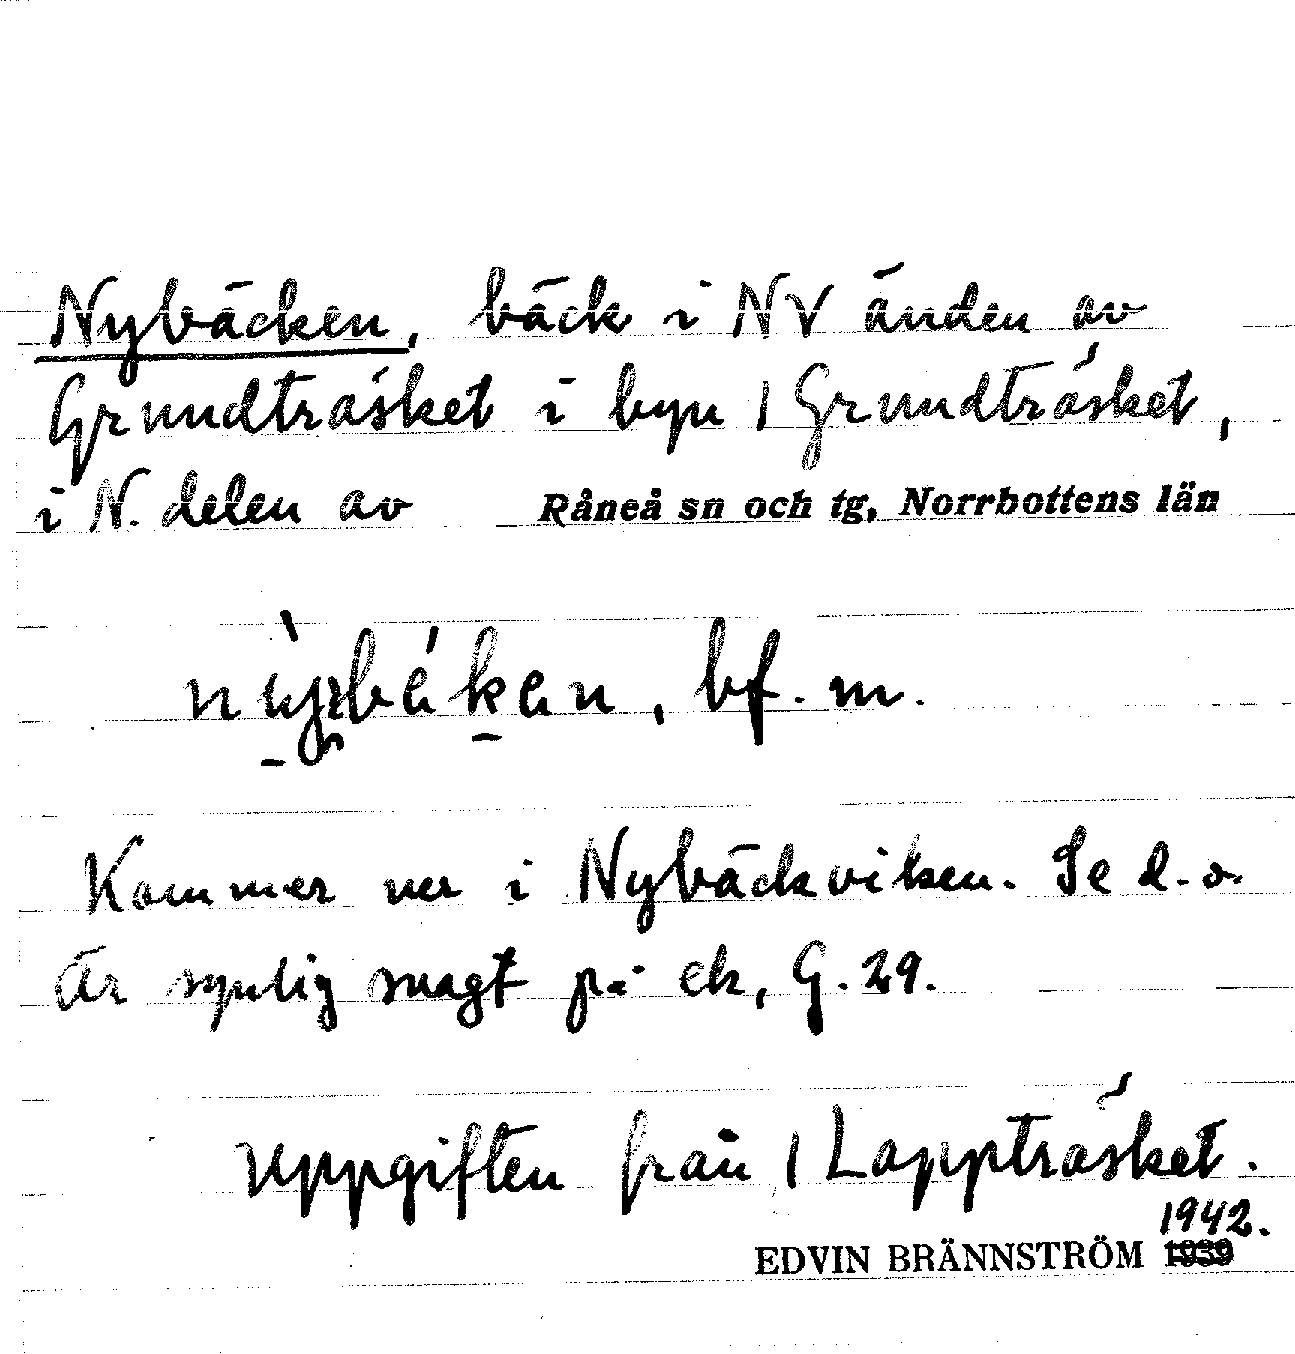 Nybäcken, bäck i NV änden av
Grundträsket i byn / Grundträsket,
i N. delen av Råneå sn och tg, Norrbottens län
bf. m.
Kommer ner i Nybäckviken. Se d. o.
Är synlig svagt på ek, G. 29.
Uppgiften från / Lappträsket.
1942.
EDVIN BRÄNNSTRÖM 1939